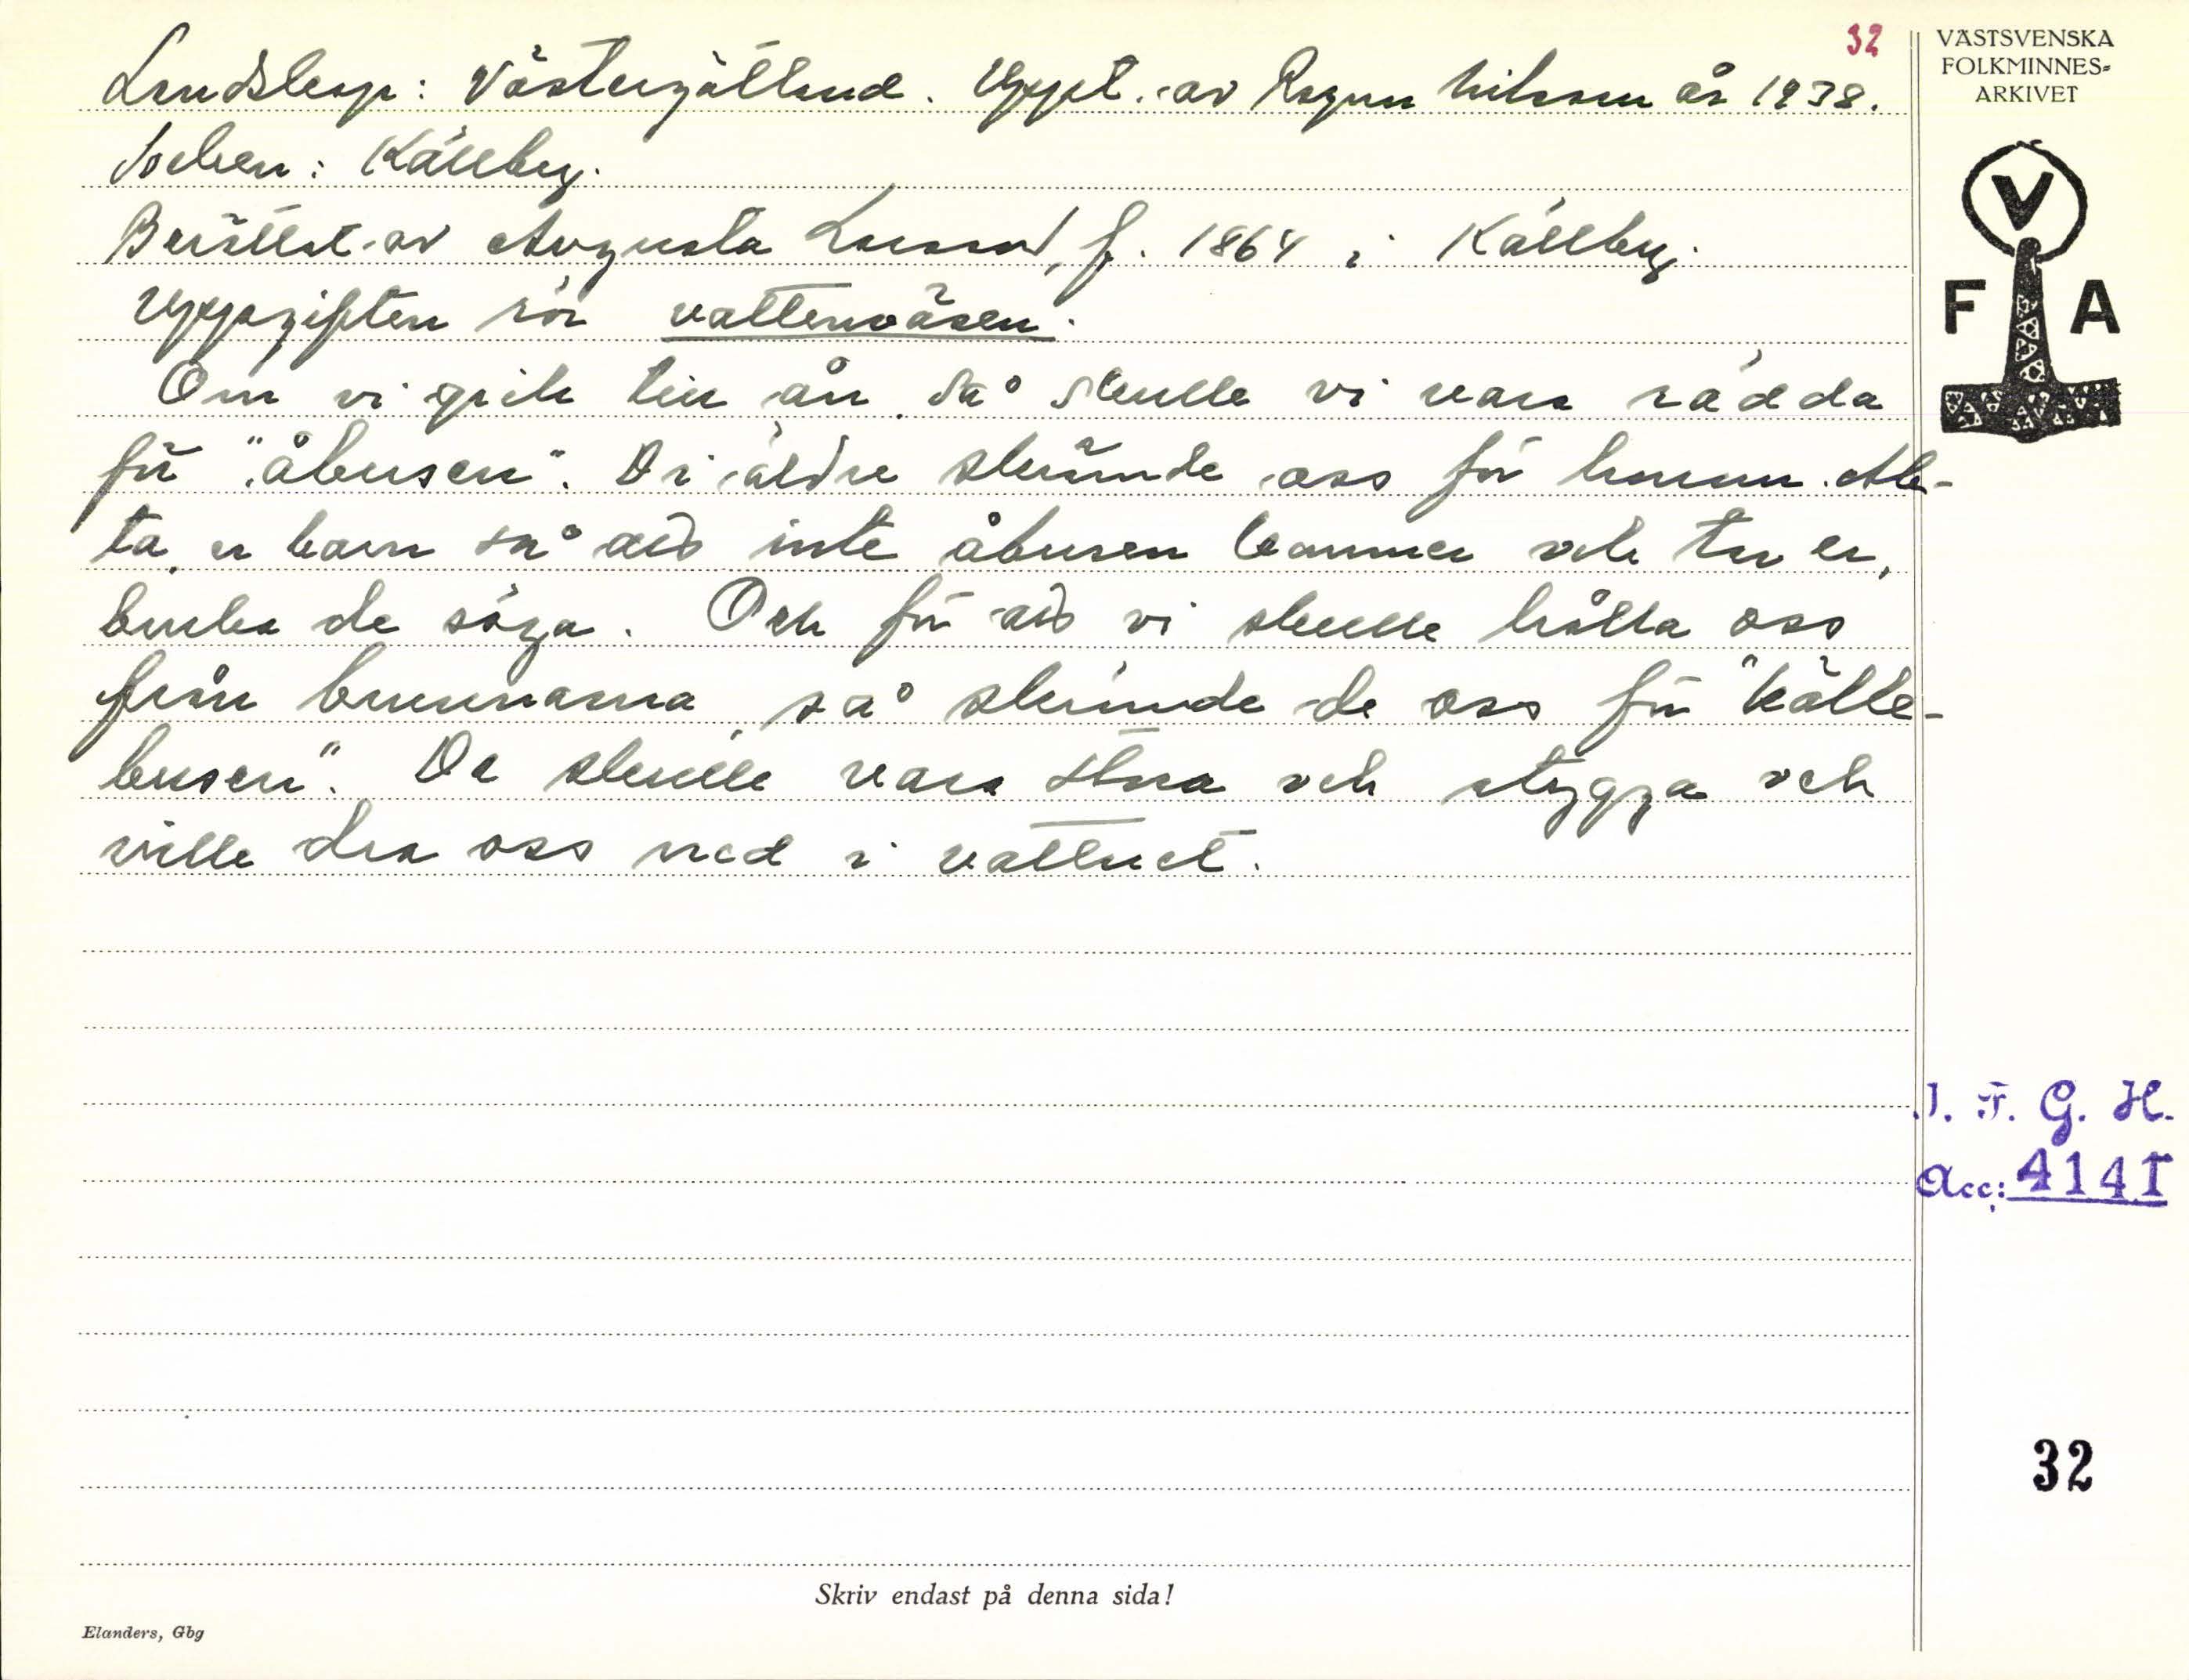 32
Landskap: Västergötland. Uppt. av Ragnar Nilsson år 1938.
Socken: Källby.
Berättat av Augusta Larsson, f. 1864 i Källby.
Uppgiften rör vattenväsen.
Om vi gick till ån, så skulle vi vara rädda
för "åbusen". Di äldre skrämde oss för honom. Ak-
ta er barn så att inte åbusen kommer och tar er,
bruka de säga. Och för att vi skulle hålla oss
från brunnarna, så skrämde de oss för "källe-
busen". De skulle vara stora och stygga och
ville dra oss ned i vattnet.
VÄSTSVENSKA
FOLKMINNES-
ARKIVET
V
F A
I. F. G. H.
Acc: 4141
32
Skriv endast på denna sida!
Elanders, Gbg